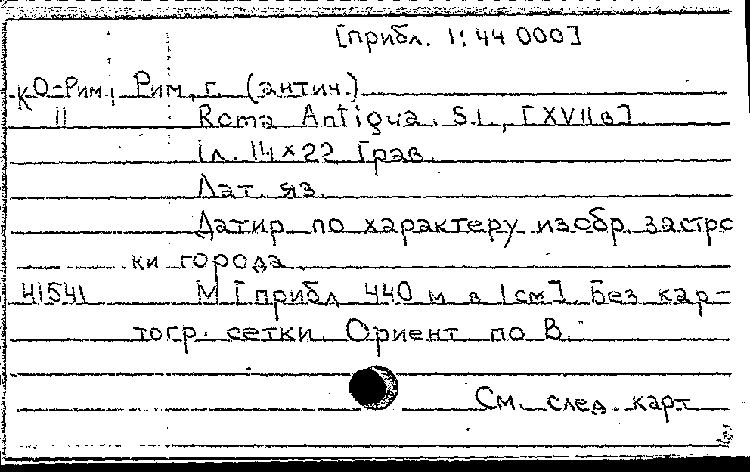 [прибл. 1:44 000]
КО-Рим, Рим, г. (антич.)
11 Roma Antigua. S.l., [XVII в]
1л. 14×22 Грав.
Лат. яз.
Датир по характеру изобр. застро
ки города
41541 М [прибл 440 м в 1см]. Без кар-
тогр. сетки. Ориент по В.
См. след. карт